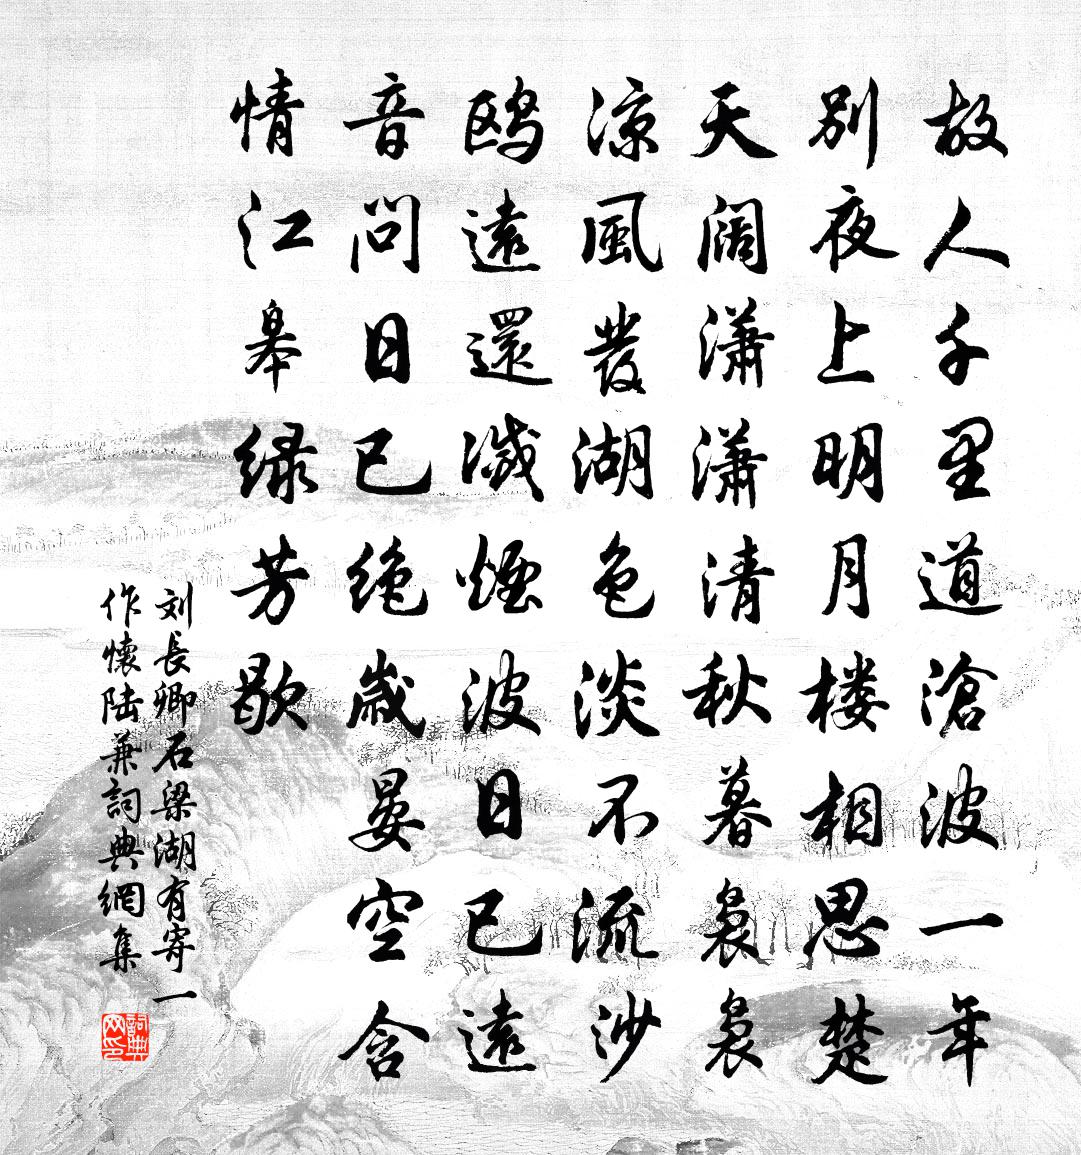 故人千里道滄波一年
別夜上明月楼相思楚
天阔瀟瀟清秋暮裊裊
涼風發湖色淡不流沙
鸥遠還滅煙波日已遠
音問日已绝歲晏空含
情江皋绿芳歇
刘長卿石梁湖有寄一
作懷陆兼詞典網集
詞典网印